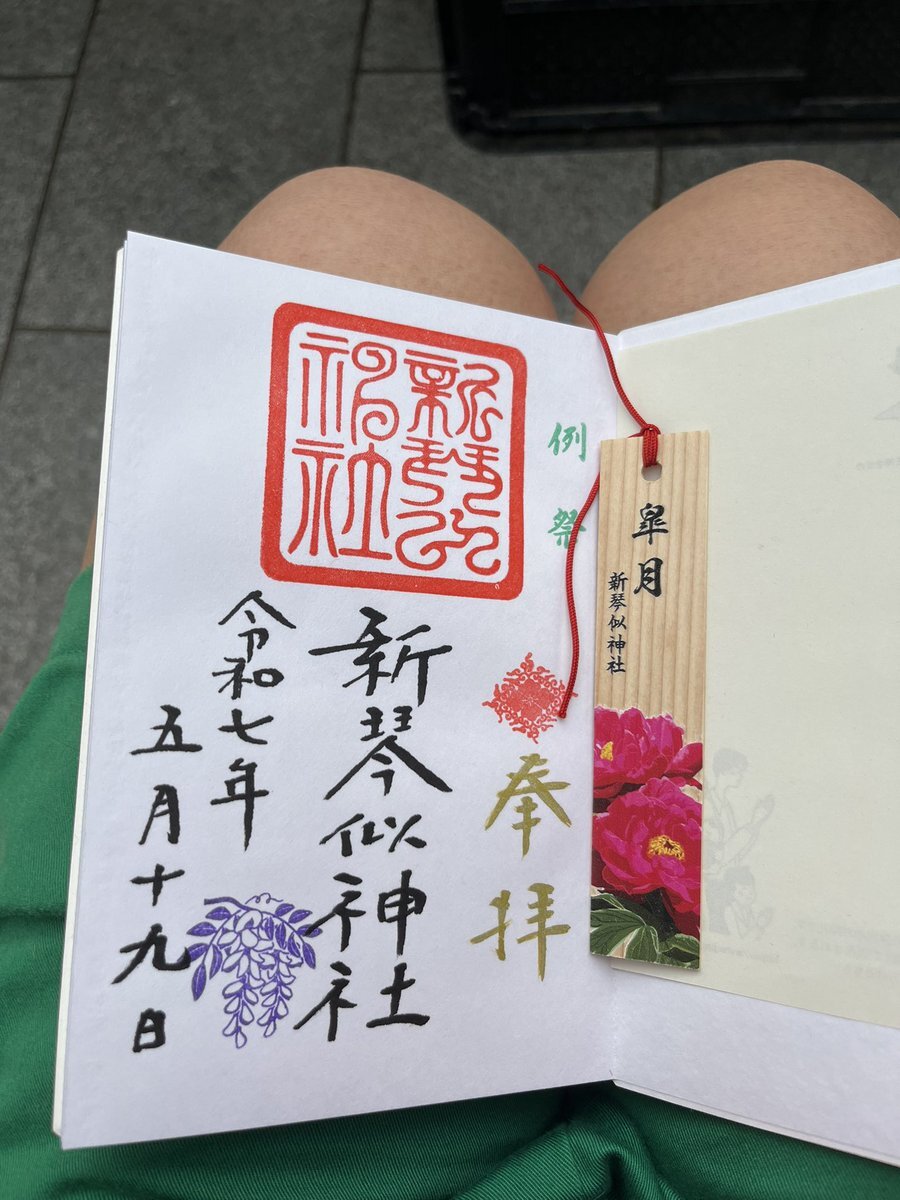 例祭
奉拝
新琴似神社
令和七年
五月十九日
新琴似神社
皐月
新琴似神社